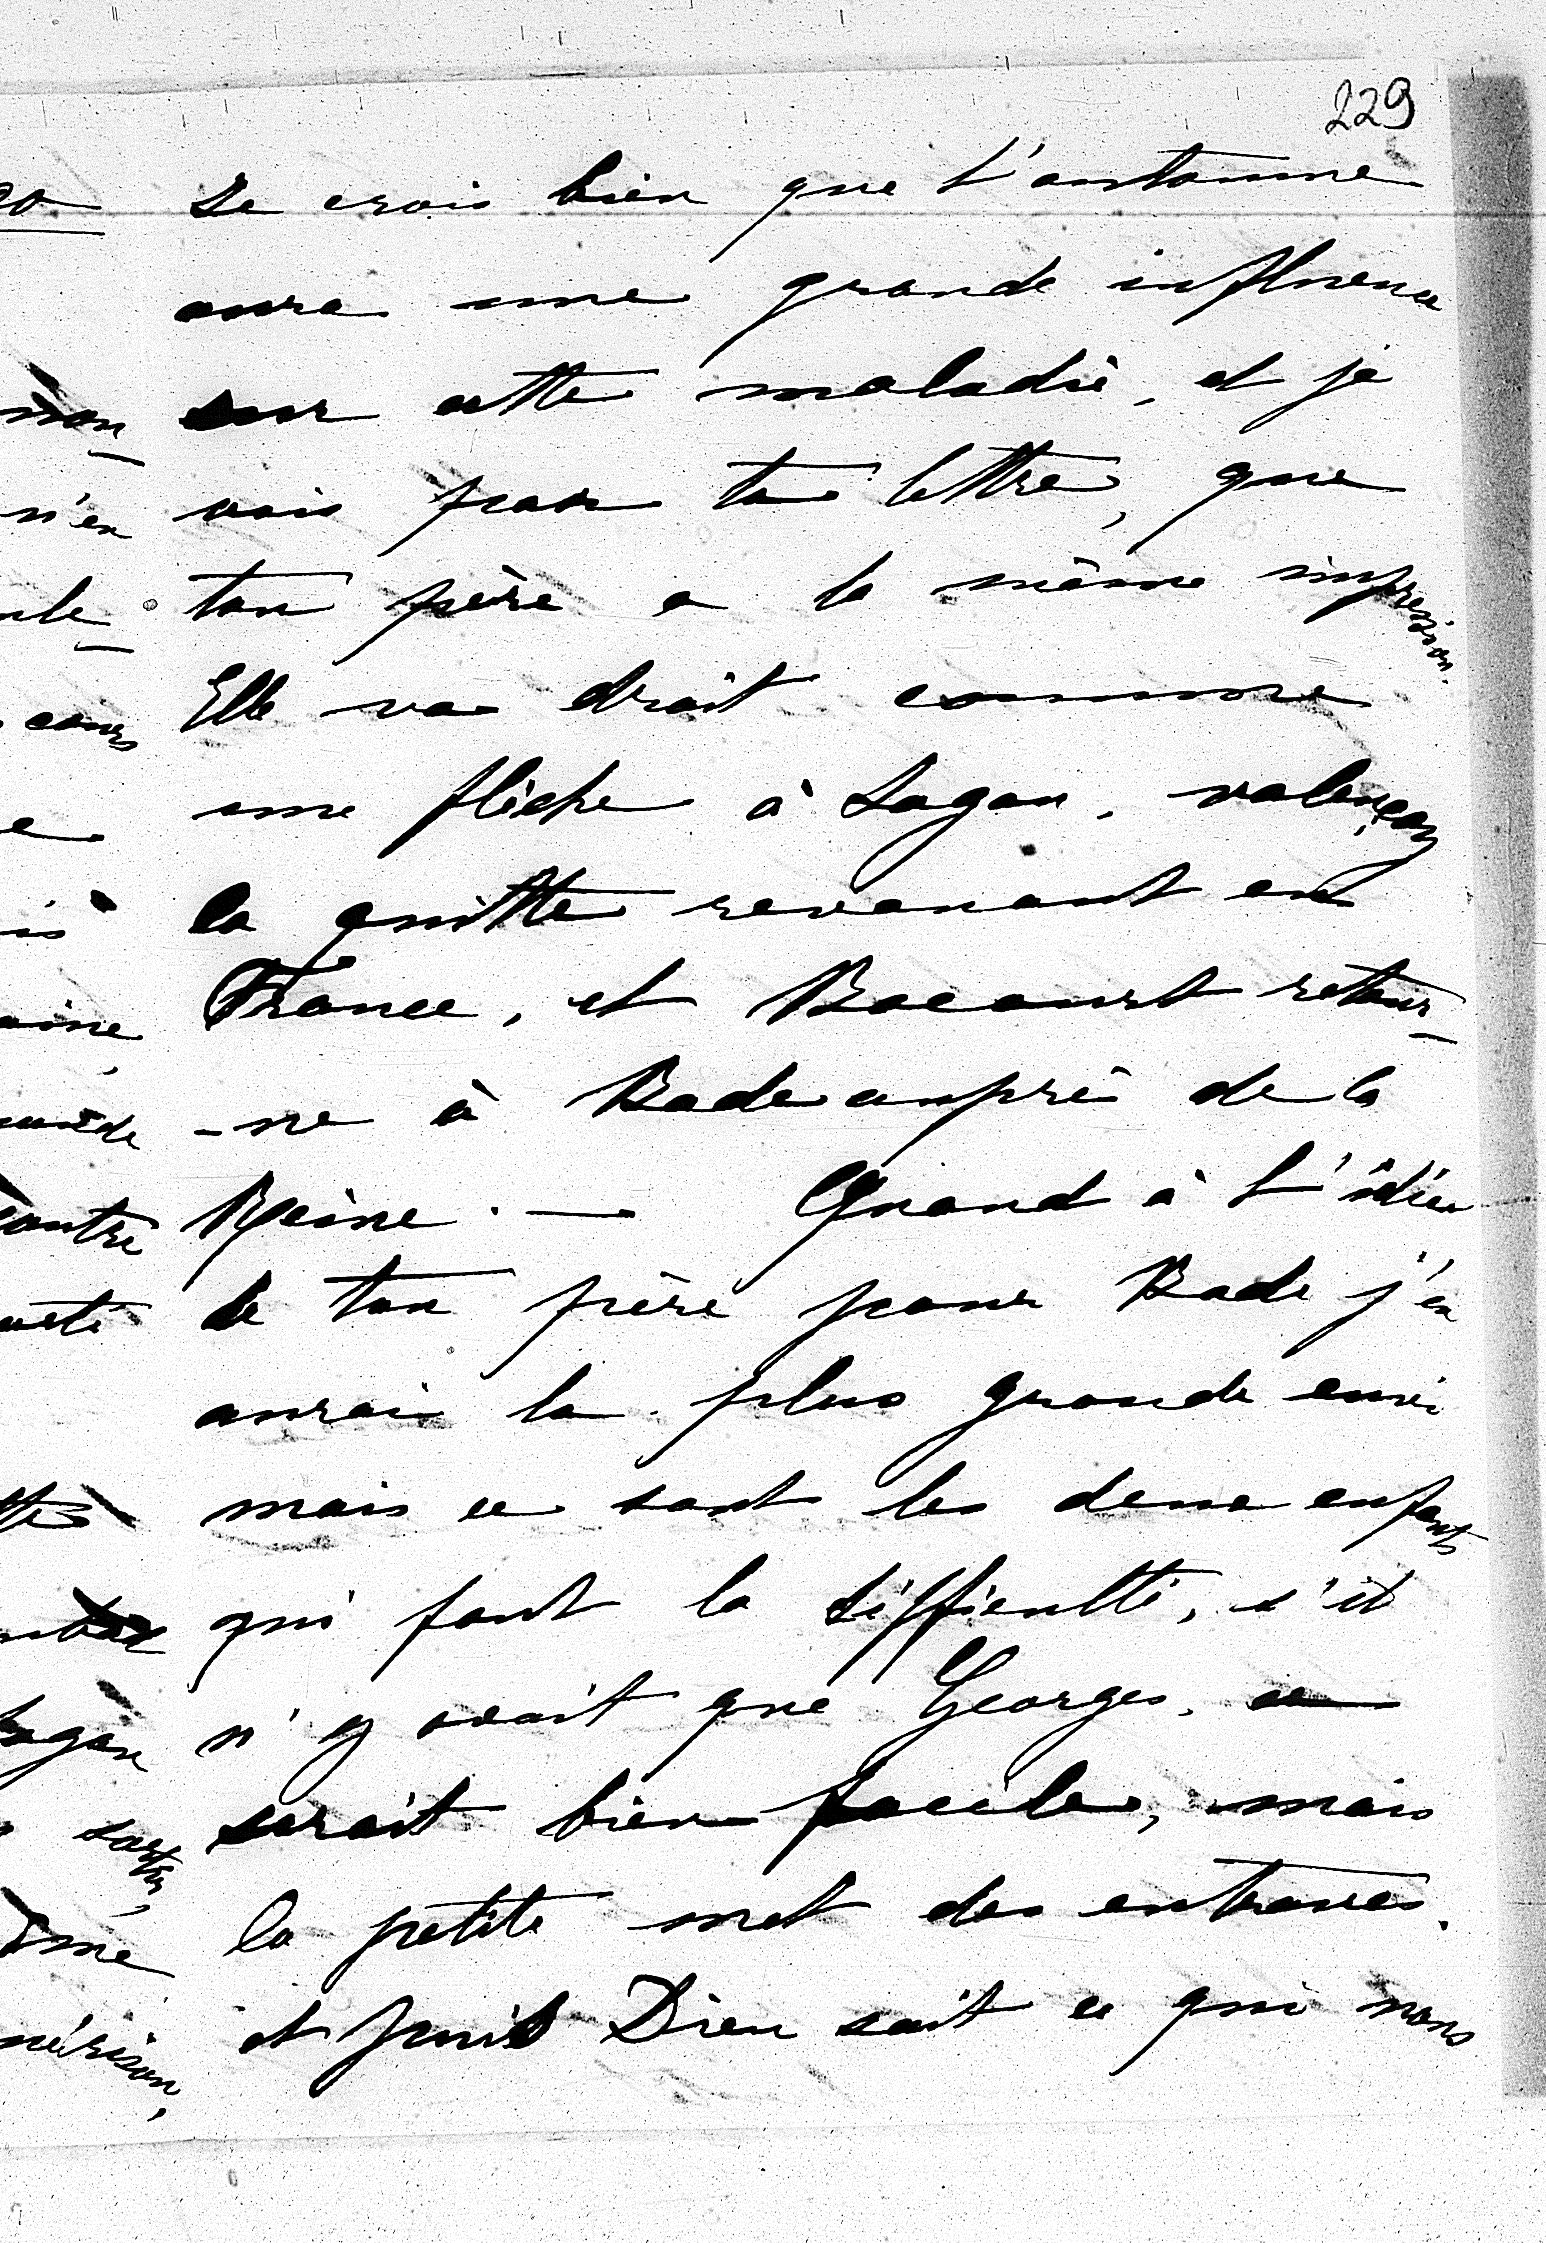 229
Je crois bien que l'automne
aura une grande influence
sur cette maladie, et je
vois par ta lettre, que
ton père a la même impression.
Elle va droit comme
une flèche à Sagan, Valençay
la quitte revenant en
France, et Bacourt retour-
-ne à Bade auprès de la
Reine. — Quand à l'idée
de ton père pour Bade j'en
aurais la plus grande envie
mais ce sont les deux enfants
qui font la difficulté, s'il
n'y avait que Georges, ce
serait bien facile, mais
la petite met des entraves.
et puis Dieu sait ce qui nous